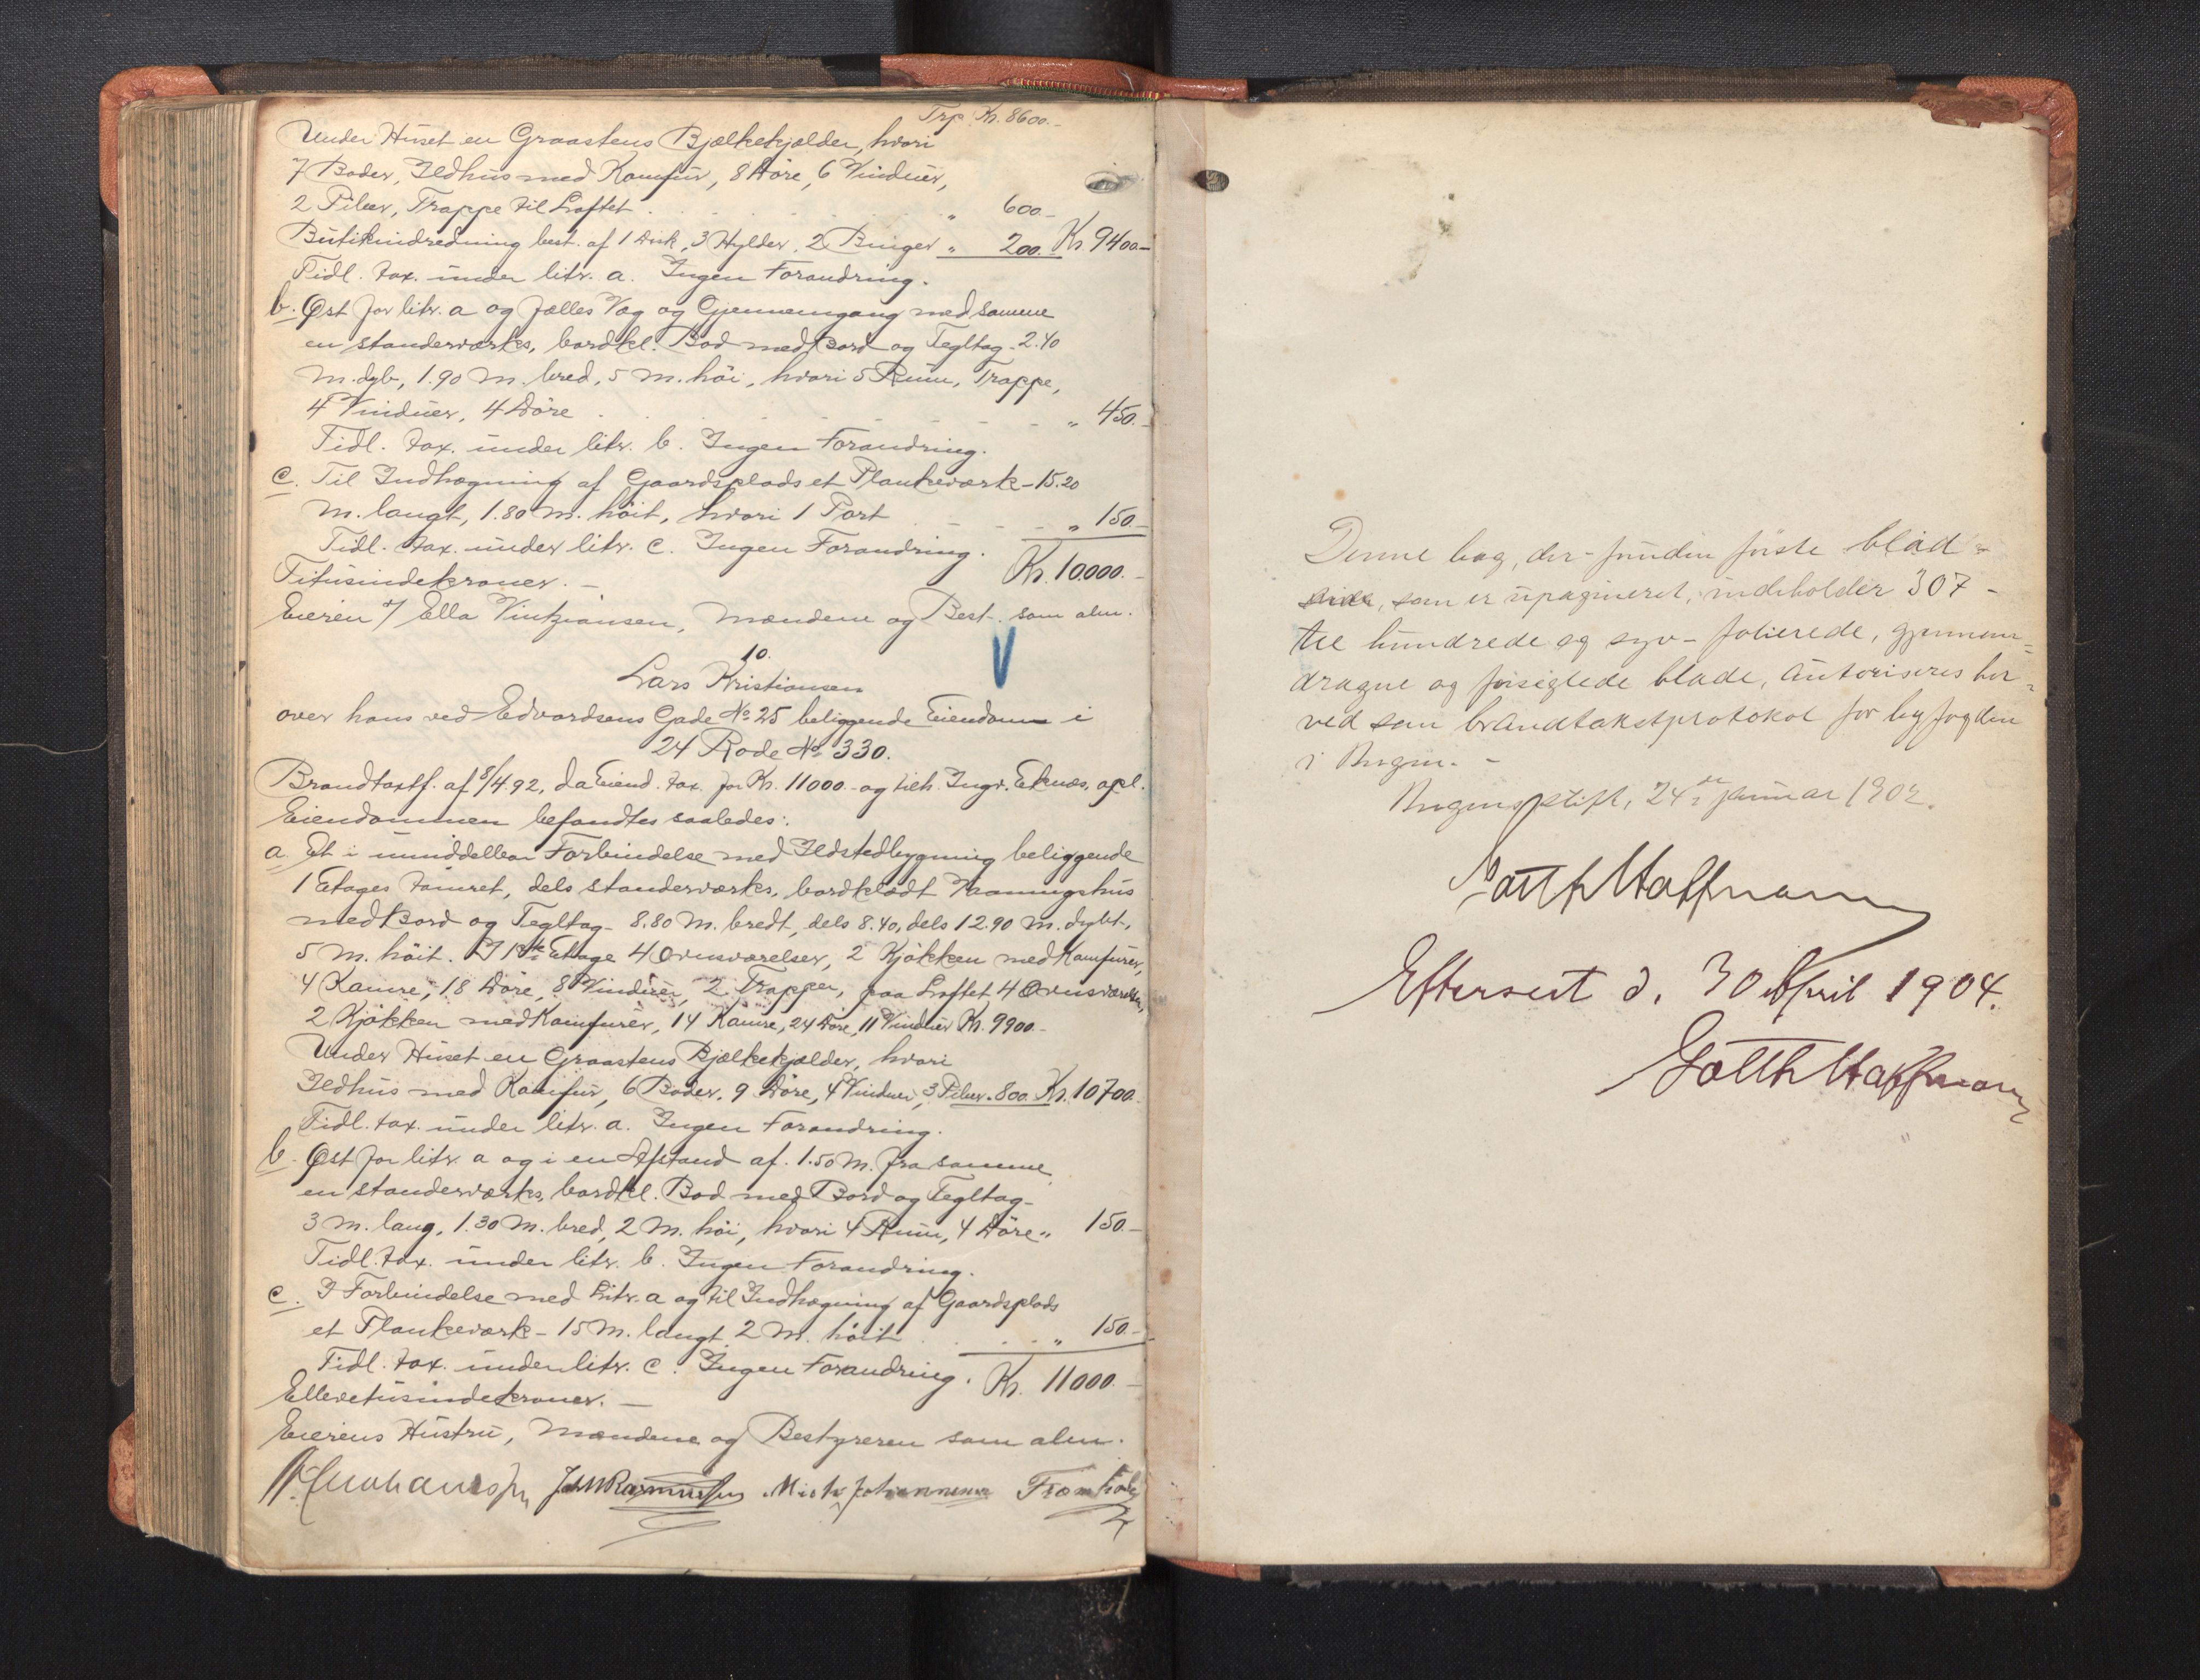 Trp. Kr. 8600.-
Under Huset en Graastens Bjælkekjelder, hvori
7 Boder, Ildhus med Komfur, 8 Døre, 6 Vinduer,
2 Piler, Trappe til Loftet . . . . . " 600.-
Butikindredning best. af 1 Disk, 3 Hylder, 2 Binger " 200. Kr. 9400.-
Tidl. tax. under litr. a. Ingen Forandring.
b. Øst for litr. a og fælles Væg og Gjennemgang med samme
en standerværks, bordkl. Bod med Bord og Tegltag - 2.40
M. dyb, 1.90 M. bred, 5 M. høi, hvori 5 Rum, Trappe,
4 Vinduer, 4 Døre . . . . . " 450.-
Tidl. tax. under litr. b. Ingen Forandring.
c. Til Indhægning af Gaardsplads et Plankeværk - 15.20
M. langt, 1.80 M. høit, hvori 1 Port - - - " 150.-
Tidl. tax. under litr. c. Ingen Forandring. Kr. 10.000.-
Titusindekroner. -
Eieren v/ Ella Vintziansen, Mændene og Best. som alm.
10.
Lars Kristiansen
over hans ved Edvardsens Gade No 25 beliggende Eiendom i
24 Rode No 330.
Brandtaxtf. af 8/4 92, da Eiend. tax. for Kr. 11000.- og tilh. Ingv. Eknæs, opl.
Eiendommen befandtes saaledes:
a. Et i umiddelbar Forbindelse med Ildstedbygning beliggende
1 Etages tømret, dels standerværks, bordklædt Vaaningshus
med Bord og Tegltag - 8.80 M. bredt, dels 8.40, dels 12.90 M. dybt,
5 M. høit. I 1ste Etage 4 Ovnsværelser, 2 Kjøkken med Komfurer,
4 Kamre, 18 Døre, 8 Vinduer, 2 Trapper, paa Loftet 4 Ovnsværelser,
2 Kjøkken med Komfurer, 14 Kamre, 24 Døre, 11 Vinduer Kr. 9900.-
Under Huset en Graastens Bjælkekjelder, hvori
Ildhus med Komfur, 6 Boder, 9 Døre, 4 Vinduer, 3 Piler " 800. Kr. 10700.
Tidl. tax. under litr. a. Ingen Forandring.
b. Øst for litr. a og i en Afstand af 1.50 M. fra samme
en standerværks, bordkl. Bod med Bord og Tegltag -
3 M. lang, 1.30 M. bred, 2 M. høi, hvori 4 Rum, 4 Døre " 150.-
Tidl. tax. under litr. b. Ingen Forandring.
c. I Forbindelse med Litr. a og til Indhægning af Gaardsplads
et Plankeværk - 15 M. langt 2 M. høit . . . " 150.-
Tidl. tax. under litr. c. Ingen Forandring. Kr. 11000.-
Ellevetusindekroner. -
Eierens Hustru, Mændene og Bestyreren som alm.
Joh. M. Rasmussen Mich Johannesen
Denne bog, der - foruden første blad-
side, som er upagineret, indeholder 307 -
tre hundrede og syv - folierede, gjennem-
dragne og forseglede blade, autoriseres her-
ved som brandtakstprotokol for byfogden
i Bergen. -
Bergens stift, 24de januar 1902.
Gotth Hoffmann
Efterseet d. 30 April 1904.
Gotth Hoffmann